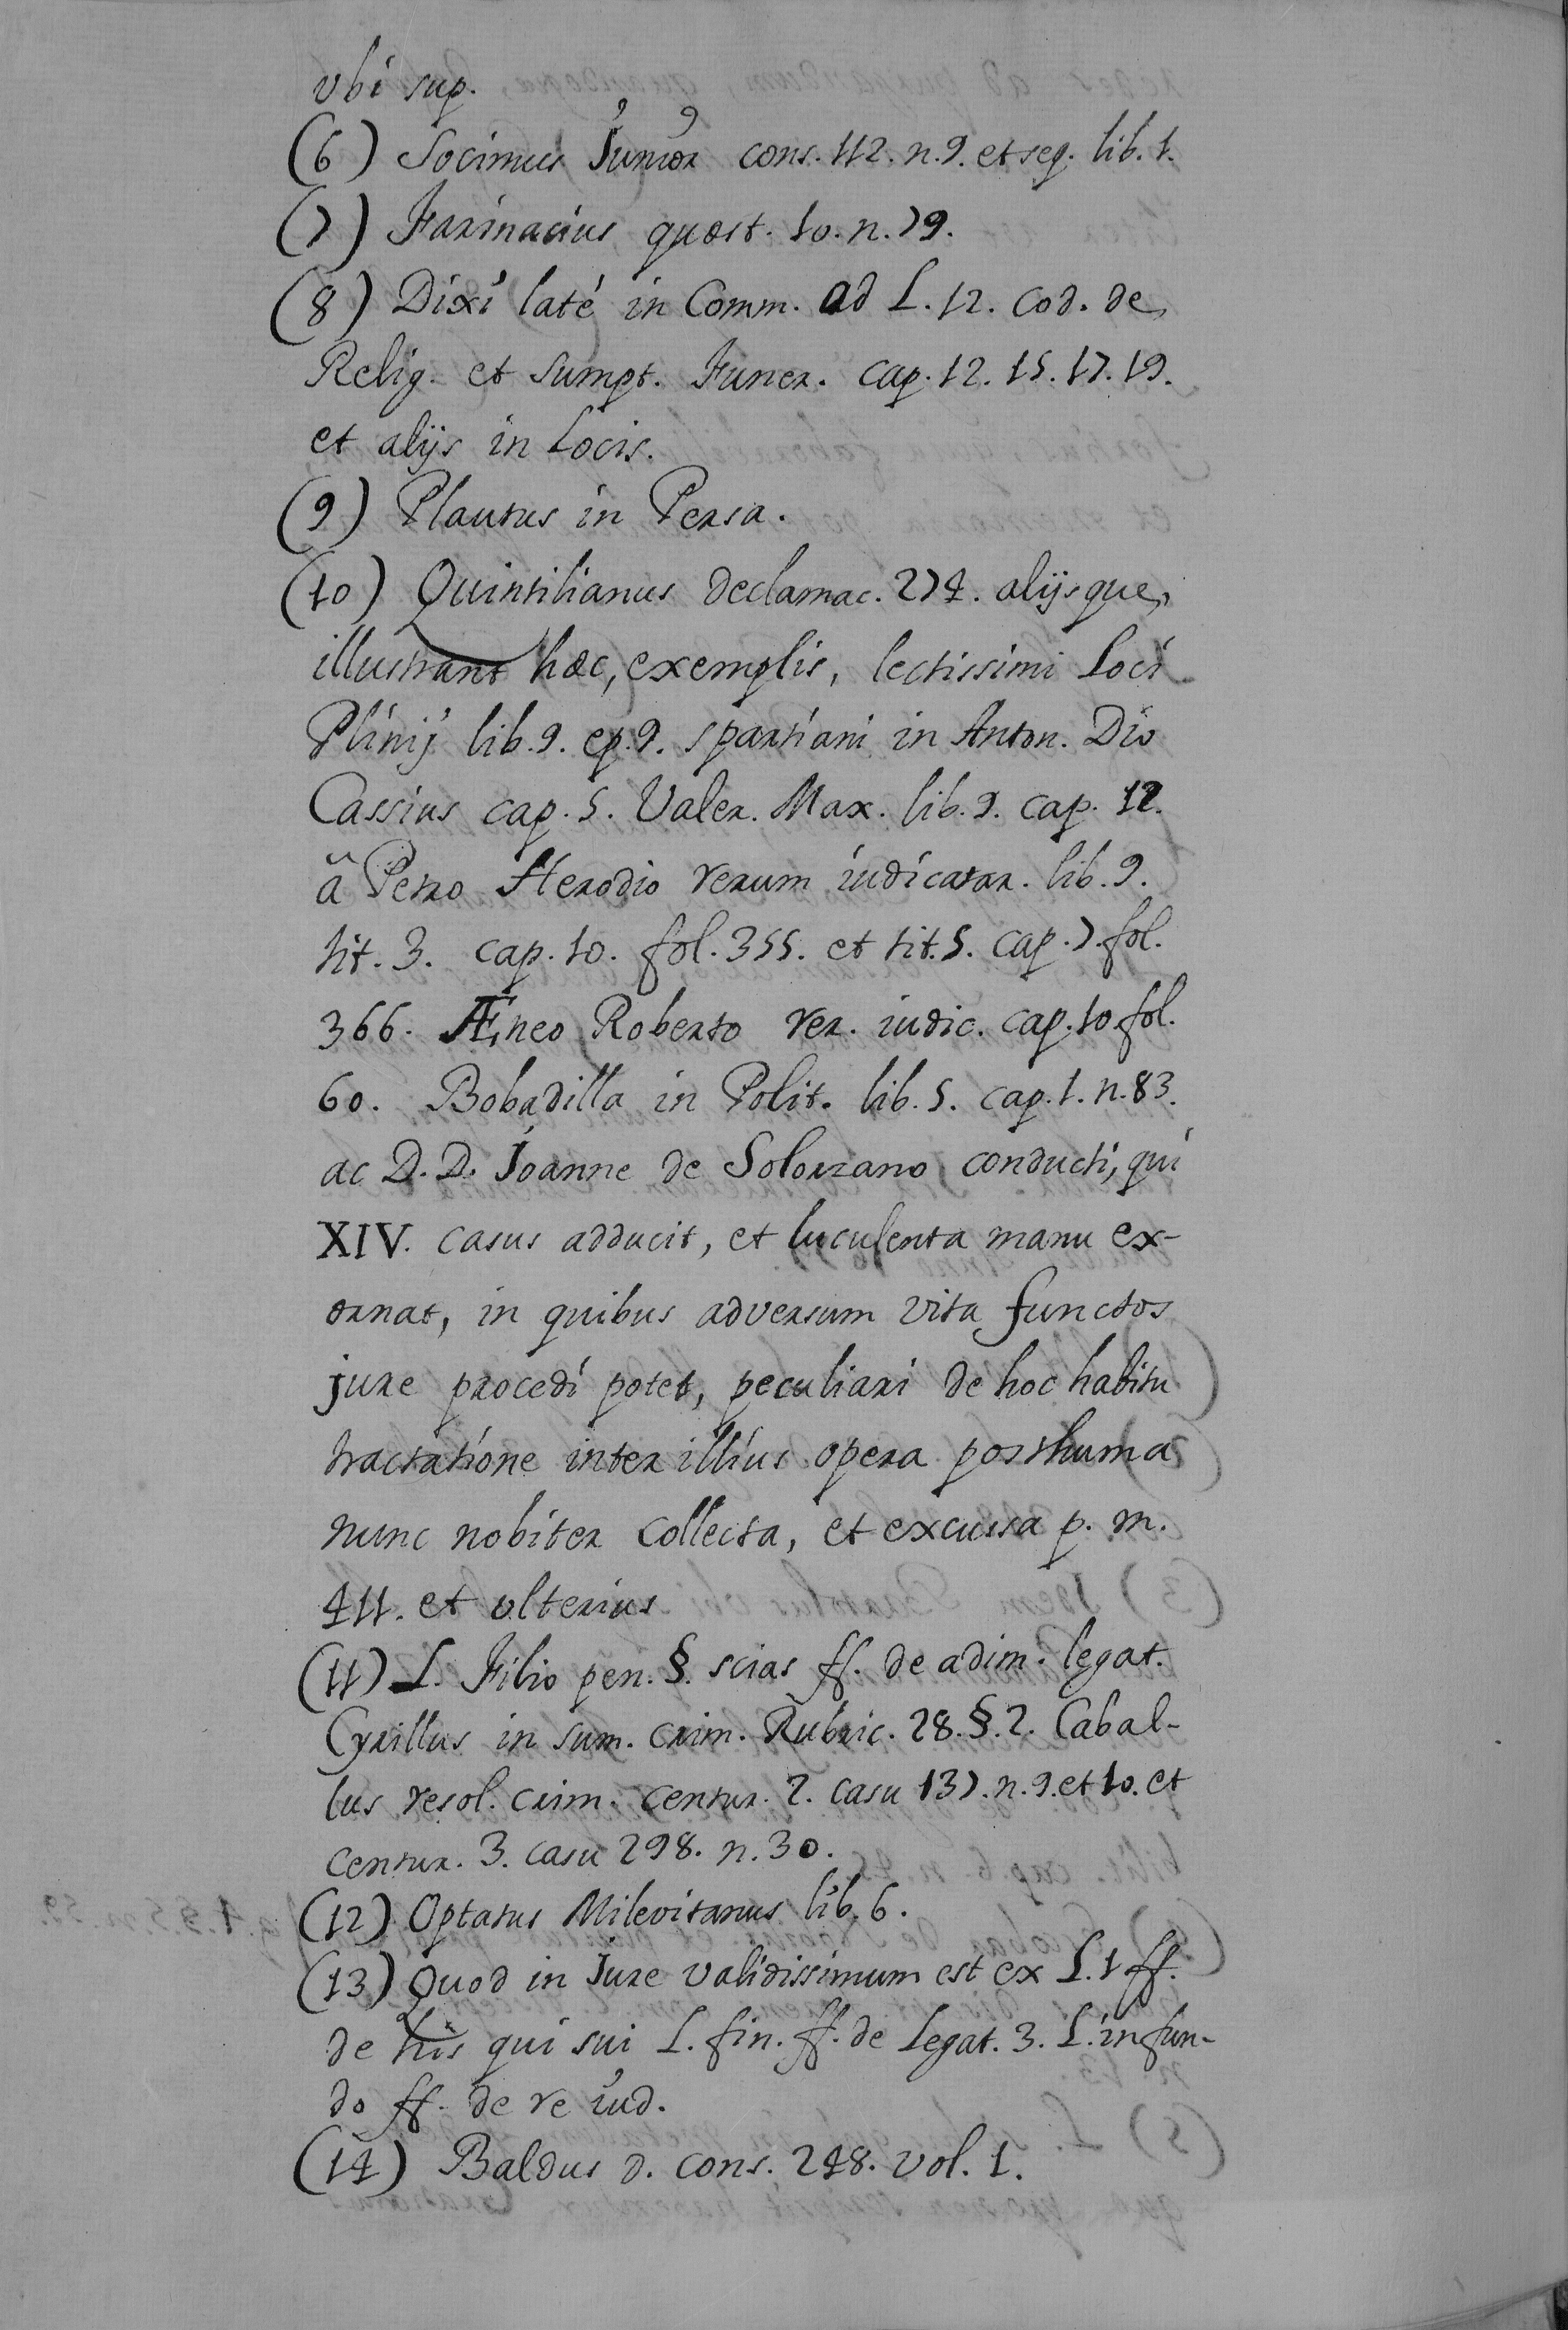 vbi sup.
(6) Socimus Junior cons. 112. n. 9. et seq. lib. 1.
(7) Farinacius quæst. 10. n. 79.
(8) Dixi laté in Comm. ad L. 12. Cod. de
Relig. et sumpt. Funer. cap. 12. 15. 17. 19.
et alijs in Locis.
(9) Plautus in Persa.
(10) Quintilianus declamac. 274. alijsque
illustrant hæc, exemplis, lectissimi Loci
Plinij lib. 9. ep. 9. spartiani in Anton. Dio
Cassius cap. 5. Valer. Max. lib. 9. cap. 12.
â Petro Herodio rerum iudicatar. lib. 9.
tit. 3. cap. 10. fol. 355. et tit. 5. cap. 7. fol.
366. Æneo Roberto rer. iudic. cap. 10. fol.
60. Bobadilla in Polit. lib. 5. cap. 1. n. 83.
ac D. D. Joanne de Solorzano conducti, qui
XIV. casus adducit, et luculenta manu ex-
ornat, in quibus adversum vita functos
jure procedi potet, peculiari de hoc habitu
tractatione inter illius opera posthuma
nunc nobiter collecta, et excussa p. m.
411. et ulterius
(11) L. Filio pen. §. scias ff. de adim. legat.
Cyrillus in sum. crim. Rubric. 28. §. 2. Cabal-
lus resol. crim. centur. 2. casu 137. n. 9. et 10. et
centur. 3. casu 298. n. 30.
(12) Optatus Milevitanus lib. 6.
(13) Quod in jure validissimum est ex L. 1 ff.
de his qui sui L. fin. ff. de Legat. 3. L. in fun-
do ff. de re iud.
(14) Baldus d. cons. 248. vol. 1.